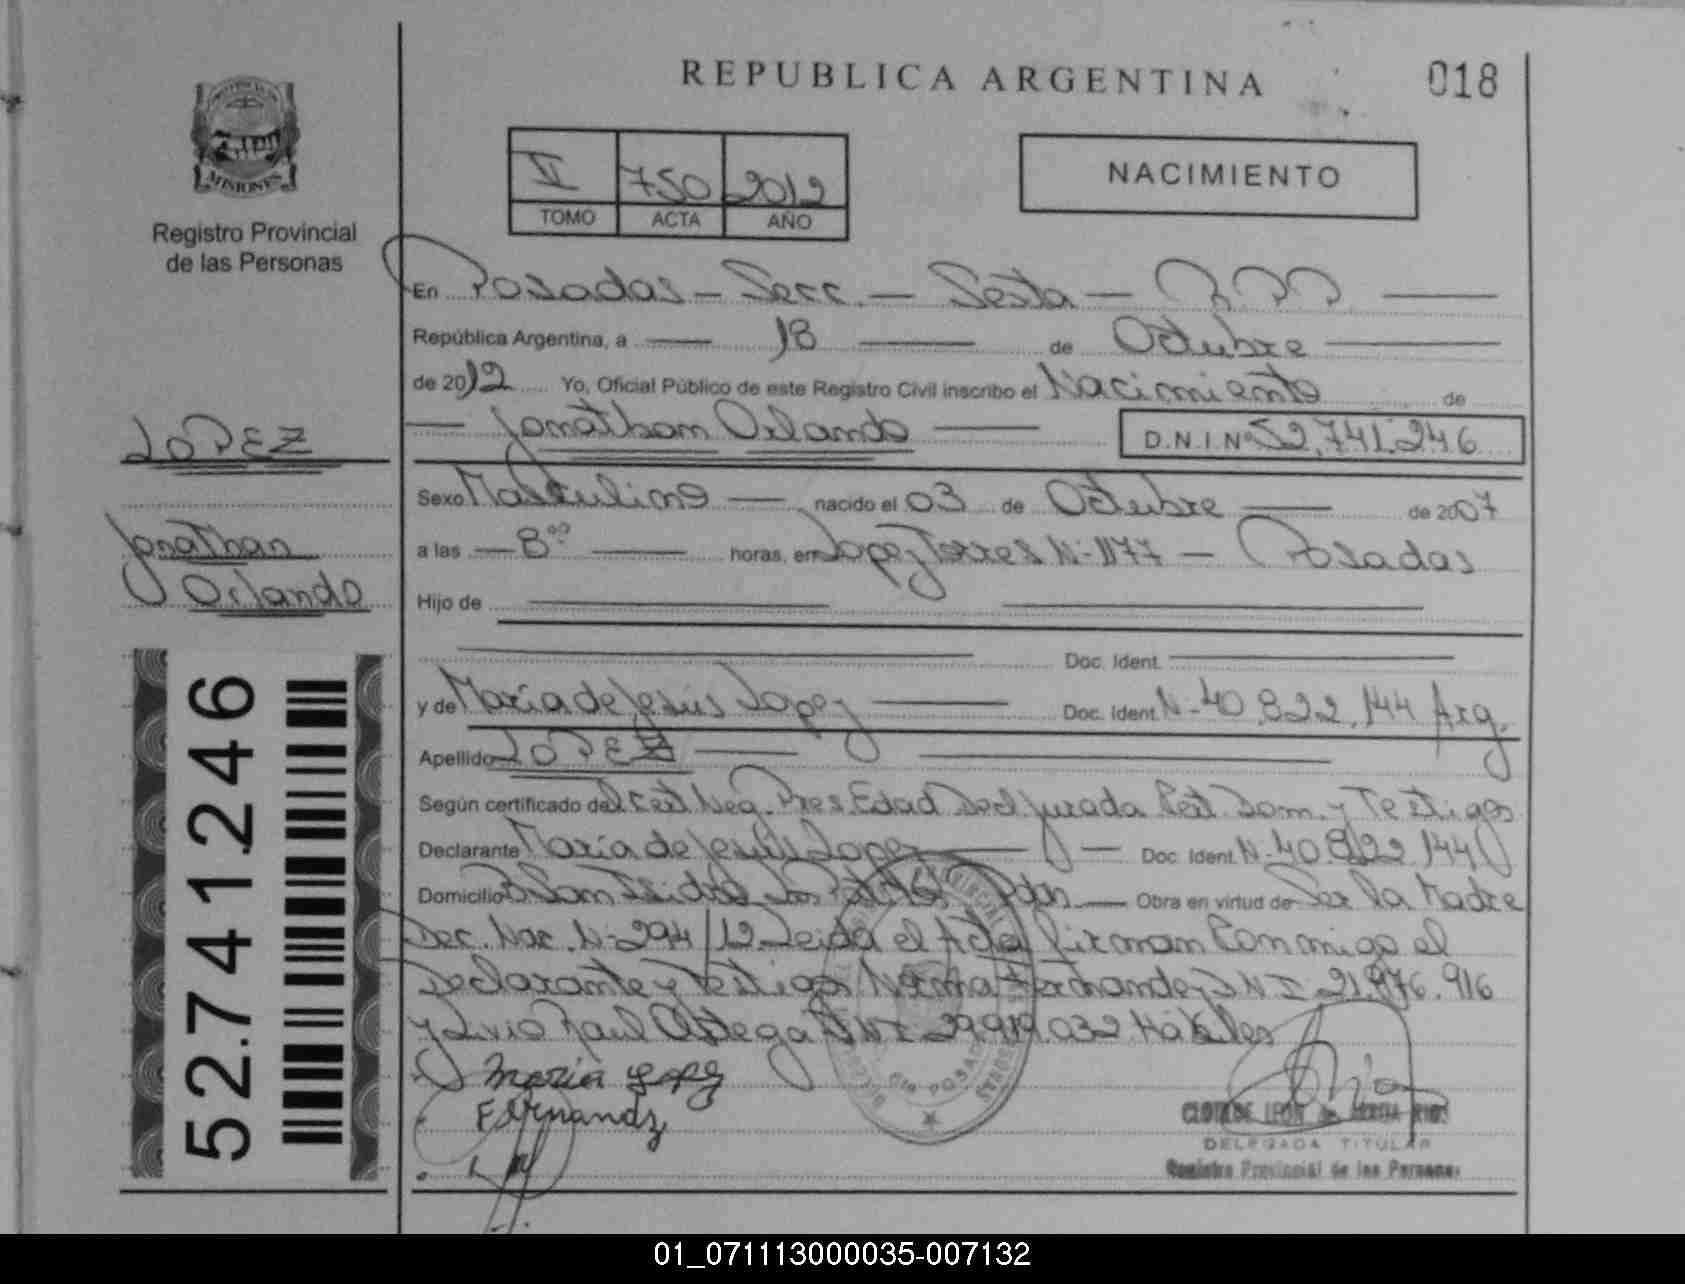 REPUBLICA ARGENTINA
018
PROVINCIA DE
MISIONES
Registro Provincial
de las Personas
II 750 2012
TOMO ACTA AÑO
NACIMIENTO
En Posadas - Secc. - Sesta -
República Argentina, a 18 de Octubre
de 2012 Yo, Oficial Público de este Registro Civil inscribo el Nacimiento de
Jonathan Orlando D.N.I.Nº 52.741.246
LOPEZ
Jonathan
Orlando
52.741.246
Sexo Masculino nacido el 03 de Octubre de 2007
a las 8ºº horas, en Lopez Torres N-1177 - Posadas
Hijo de
Doc. Ident.
y de María de Jesús Lopez Doc. Ident. N-40.822.144 Arg.
Apellido LOPEZ
Según certificado de Cert. Neg. Pres. Edad Decl Jurada Cert. Dom. y Testigos
Declarante María de Jesús Lopez Doc. Ident. N-40.822.144
Domicilio San Isidro Pdas. Obra en virtud de Ser la Madre
Dec. Nac. N-294/12. Leída el Acta firman Conmigo el
Declarante y Testigos Norma Fernandez DNI 21.976.916
y Livio Raul Ortega DNI 29.919.032 Hábiles
María Lopez
Fernandz
DELEGADA TITULAR
Registro Provincial de las Personas
01_071113000035-007132